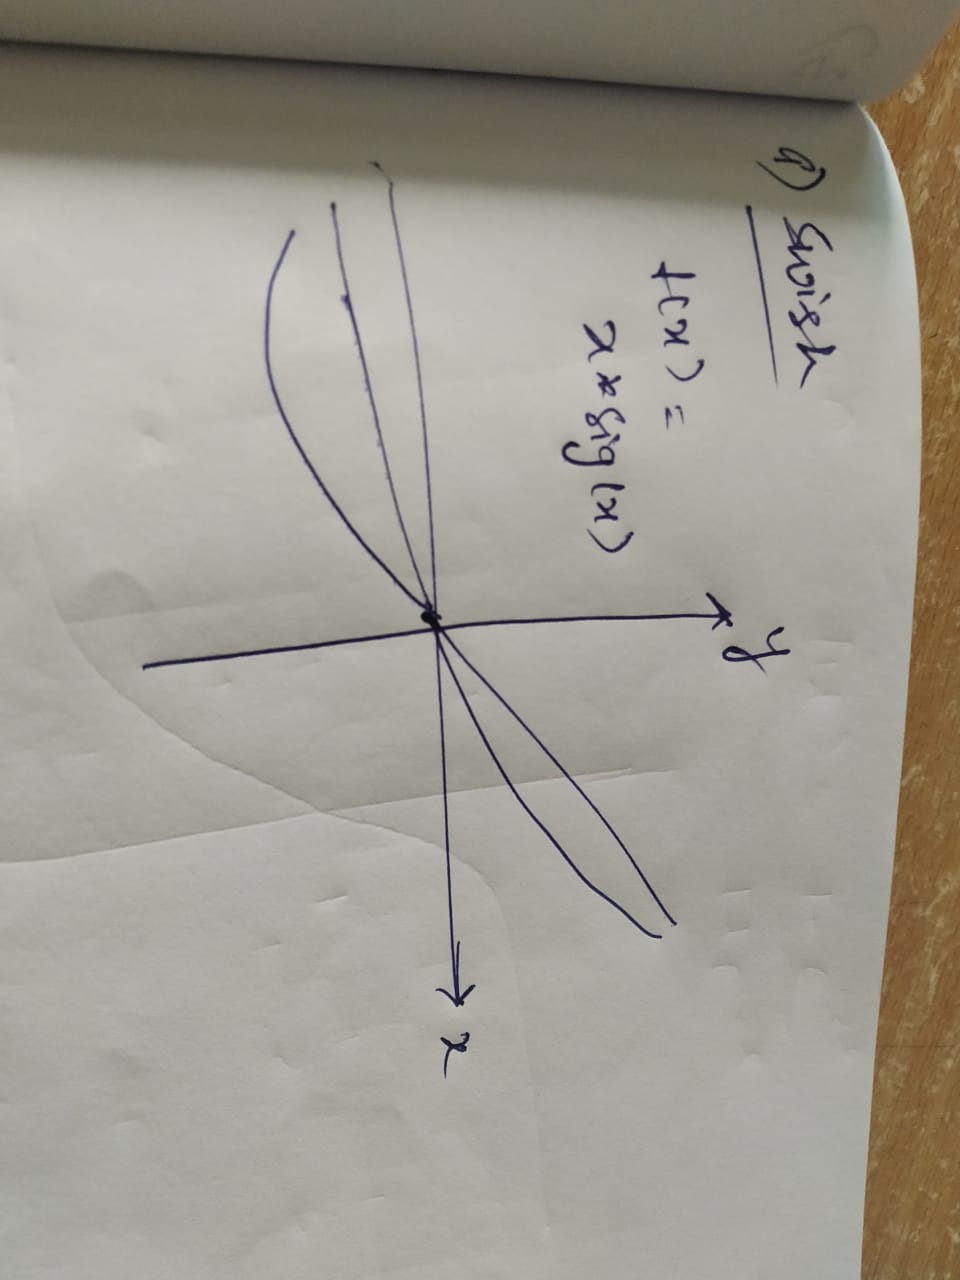 9) Swish
f(x) =
x * sig(x)
y
x